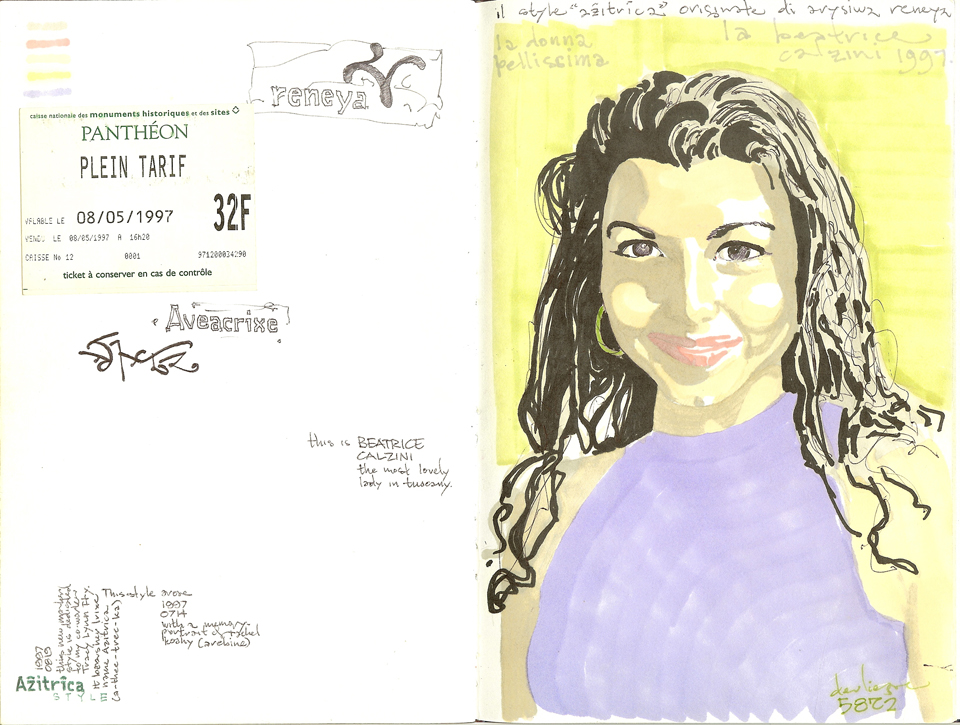 caisse nationale des monuments historiques et des sites
PANTHÉON
PLEIN TARIF
VALABLE LE 08/05/1997
32F
VENDU LE 08/05/1997 A 16h20
CAISSE No 12 0001 971200034290
ticket à conserver en cas de contrôle
reneya
Aveacrixe
this is BEATRICE
CALZINI
the most lovely
lady in tuscany.
1997
0819
this new marker
style is dedicated
to my co-worker
Tracy Lynn Fty.
It bears her
name Azitrica
(a-thee-tree-ka)
This style arose
1997
0714
with a memory-
portrait of rachel
koshy (arebine)
Ažitrîca
STYLE
il style "ažitrica" originate di arysiwa reneya
la donna
bellissima
la beatrice
calzini 1997.
5822